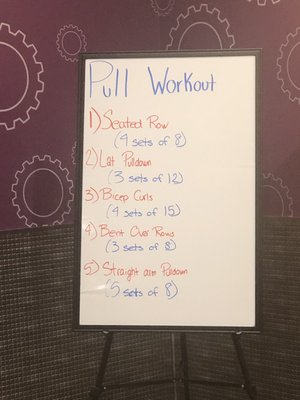 Pull Workout
1) Seated Row
(4 sets of 8)
2) Lat Pulldown
(3 sets of 12)
3) Bicep Curls
(4 sets of 15)
4) Bent Over Rows
(3 sets of 8)
5) Straight arm Pulldown
(5 sets of 8)